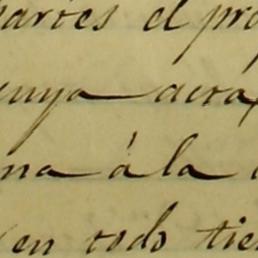 partes el pro
cuya acta
na á la
en todo tie